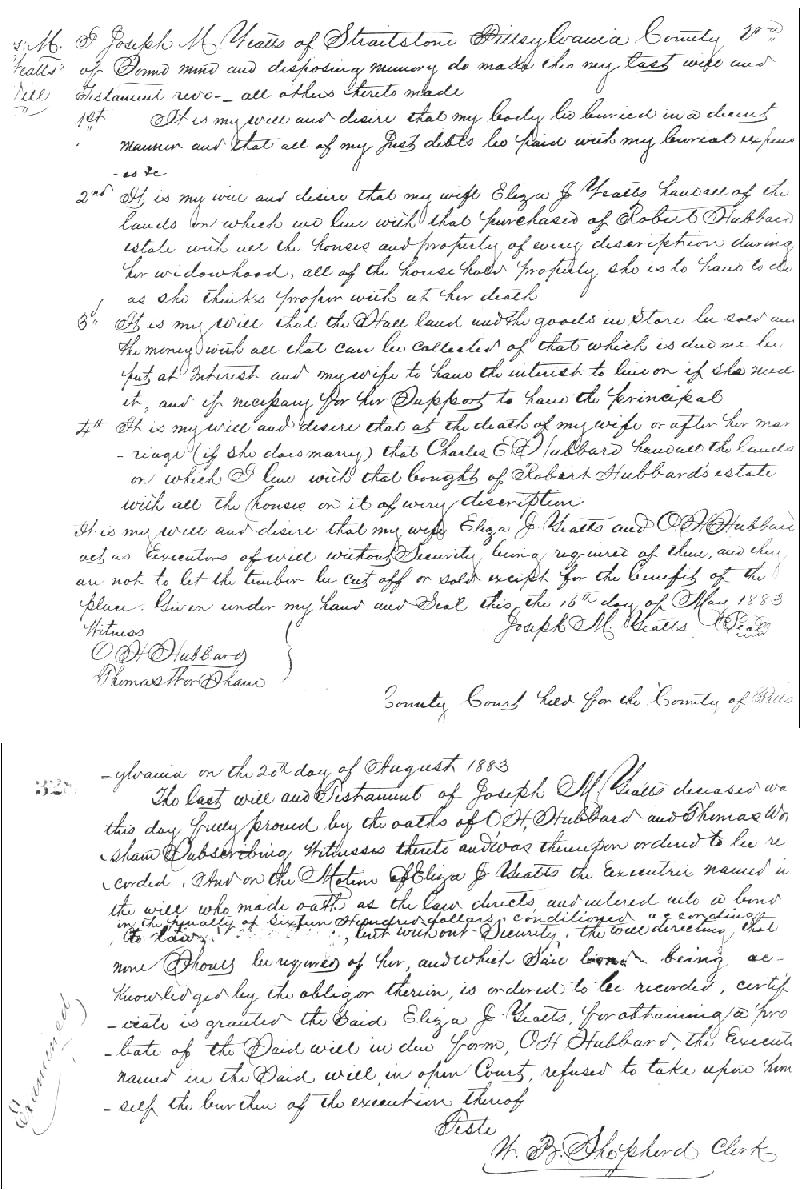 J. M. Yeatts' Will
I Joseph M Yeatts of Straitstone Pittsylvania County
of Sound mind and disposing memory do make this my last will and
Testament revo-_ all others hereto made
1st It is my will and desire that my body be buried in a decent
manner and that all of my Just debts be paid with my burial expens
- es &c
2nd It is my will and desire that my wife Eliza J Yeatts have all of the
lands on which we live with that purchased of Robert Hubbard
estate with all the houses and property of every discription during
her widowhood, all of the household property she is to have to do
as she thinks proper with at her death
3d It is my will that the Hall land and the goods in Store be sold an
the money with all that can be collected of that which is due me be
put at Interest and my wife to have the interest to live on if she need
it, and if necessary for her Support to have the principal
4th It is my will and desire that at the death of my wife or after her mar
- riage (if she does marry) that Charles E Hubbard have all the lands
on which I live with that bought of Robert Hubbard's estate
with all the houses on it of every discription
It is my will and desire that my wife Eliza J Yeatts and O H Hubbard
act as Executors of will without Security being required of them, and they
are not to let the timber be cut off or sold except for the benefit of the
place. Given under my hand and Seal this, the 16th day of May 1883
Joseph M Yeatts Seal
Witness
O H Hubbard
Thomas Worsham
County Court held for the County of Pitts
-ylvania on the 20th day of August 1883
The last will and Testament of Joseph M Yeatts deceased wa
this day fully proved by the oaths of O H. Hubbard and Thomas Wor
sham Subscribing Witnesses thereto and was thereupon ordered to be re
corded. And on the Motion of Eliza J Yeatts the Executrix named in
the will who made oath as the law directs and entered into a bond
in the penalty of Sixteen Hundred dollars, conditioned according
to law, but without Security, the will directing that
none Should be required of her, and which Said bond being ac-
knowledged by the obligor therein, is ordered to be recorded, certif
-icate is granted the Said Eliza J Yeatts, for obtaining a pro
-bate of the Said will in due form, O H Hubbard, the Executo
named in the Said will, in open Court, refused to take upon him
- self the burthen of the execution thereof
Teste
W. B. Shepherd Clerk
Examined